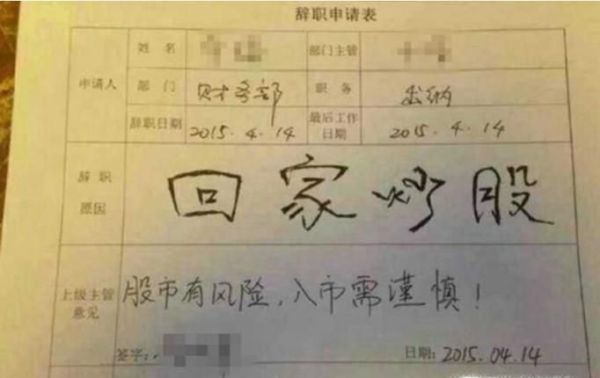 辞职申请表
申请人 姓名 部门主管
部门 财务部 职务 出纳
辞职日期 2015.4.14 最后工作日期 2015.4.14
辞职原因 回家炒股
上级主管意见 股市有风险，入市需谨慎！
签字： 日期：2015.04.14